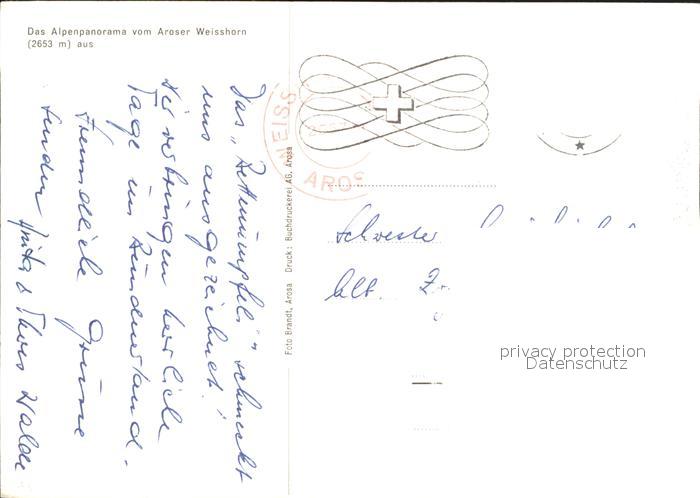 Das Alpenpanorama vom Aroser Weisshorn
(2653 m) aus
Das „Bettmümpfeli" schmeckt
uns ausgezeichnet!
Wir verbringen herrliche
Tage im Bündnerland.
Freundliche Grüsse
senden
Foto Brandt, Arosa Druck: Buchdruckerei AG, Arosa
WEISS
AROS
Schwester
privacy protection
Datenschutz